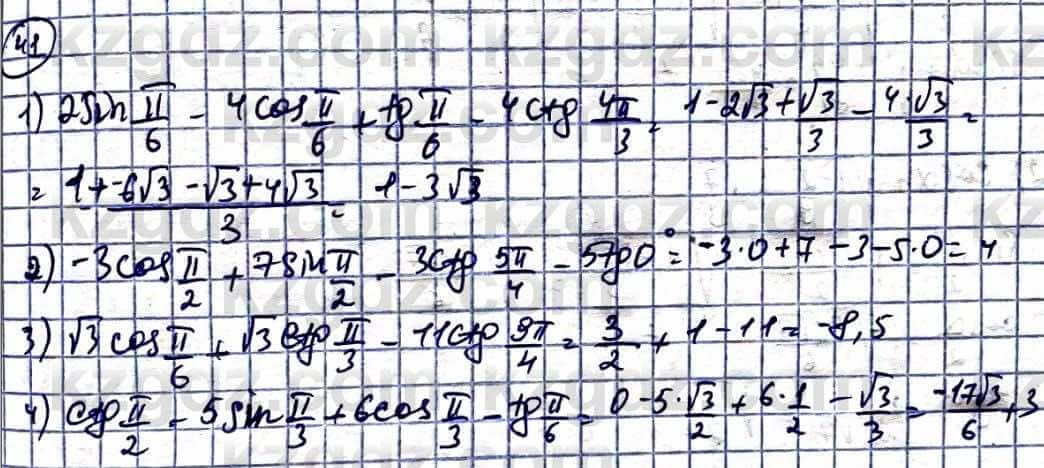 41
1) 2sin π/6 - 4cos π/6 + tg π/6 - 4ctg 4π/3 = 1-2√3+√3/3 - 4√3/3 =
= 1+ -6√3-√3+4√3/3 = 1-3√3
2) -3cos π/2 + 7sin π/2 - 3ctg 5π/4 - 5tg0 = -3·0+7-3-5·0=4
3) √3cos π/6 + √3ctg π/3 - 11ctg 9π/4 = 3/2 + 1-11=-8,5
4) ctg π/2 - 5sin π/3 + 6cos π/3 - tg π/6 = 0-5·√3/2 + 6·1/2 - √3/3 = -17√3/6 + 3
kzgdz.com